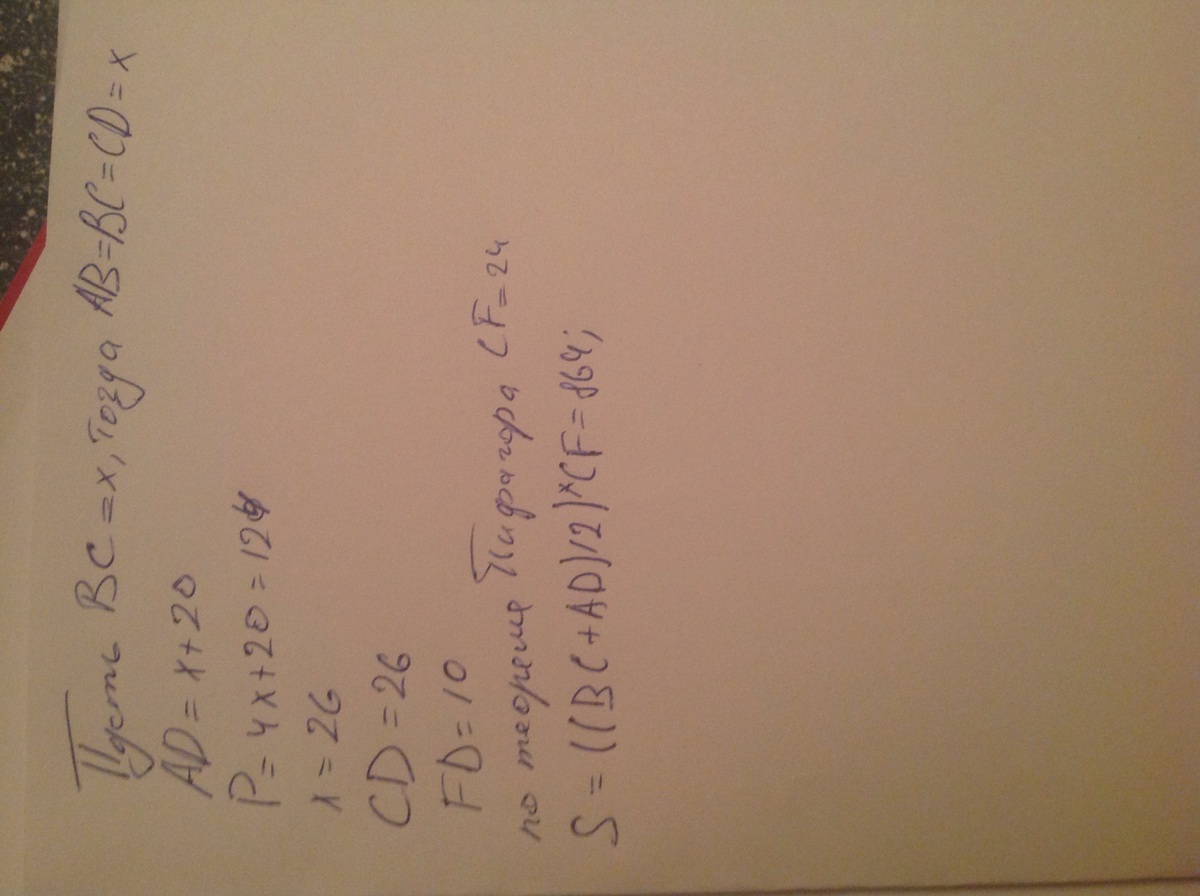 Пусть BC = x, тогда AB = BC = CD = x
AD = x + 20
P = 4x + 20 = 124
x = 26
CD = 26
FD = 10
по теореме Пифагора CF = 24
S = ((BC + AD)/2)*CF = 864;